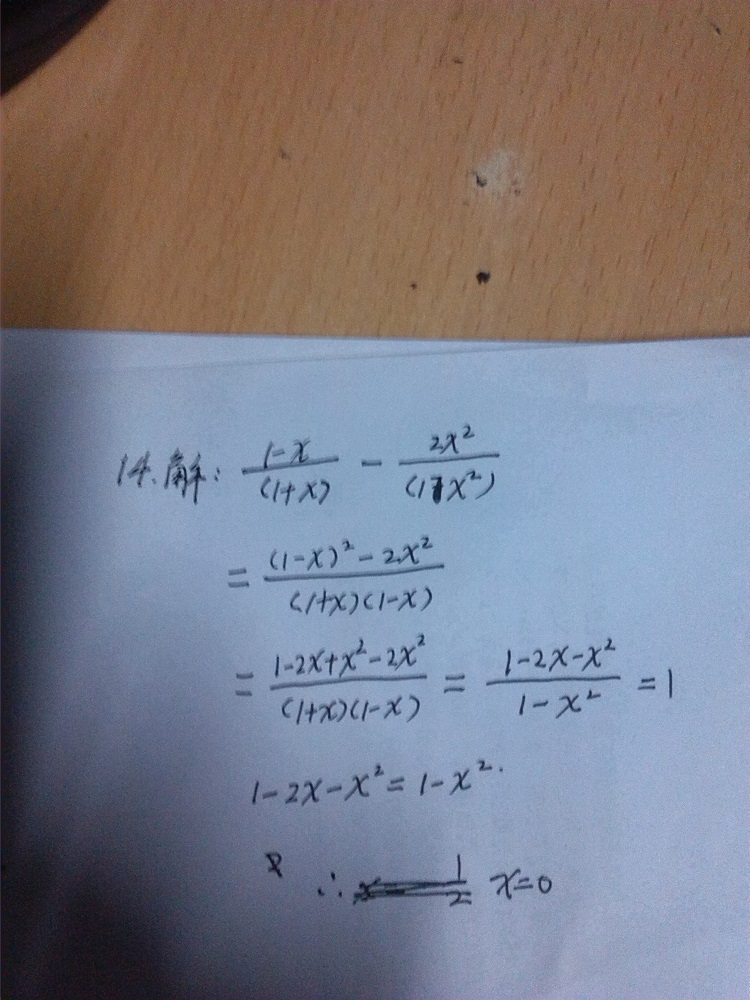 14.解: (1-x)/(1+x) - 2x²/(1-x²)
= ((1-x)²-2x²)/((1+x)(1-x))
= (1-2x+x²-2x²)/((1+x)(1-x)) = (1-2x-x²)/(1-x²) = 1
1-2x-x²=1-x².
∴ x=0